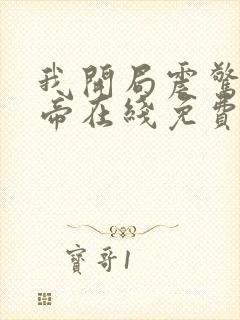 我開局震驚
帝在綫免費
寶哥1